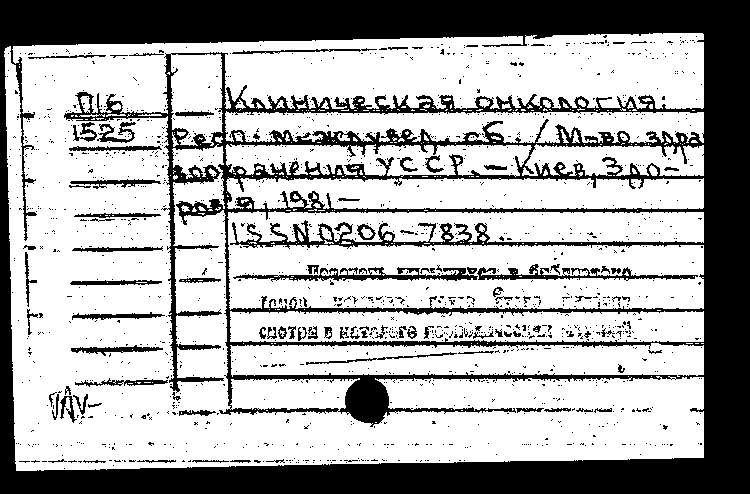 П16
1525
Клиническая онкология:
Респ. междувед. сб. / М-во здра
воохранения УССР. – Киев, Здо-
ров'я, 1981 –
ISSN 0206-7838.
в библиотеке
смотри в каталоге периодических изданий